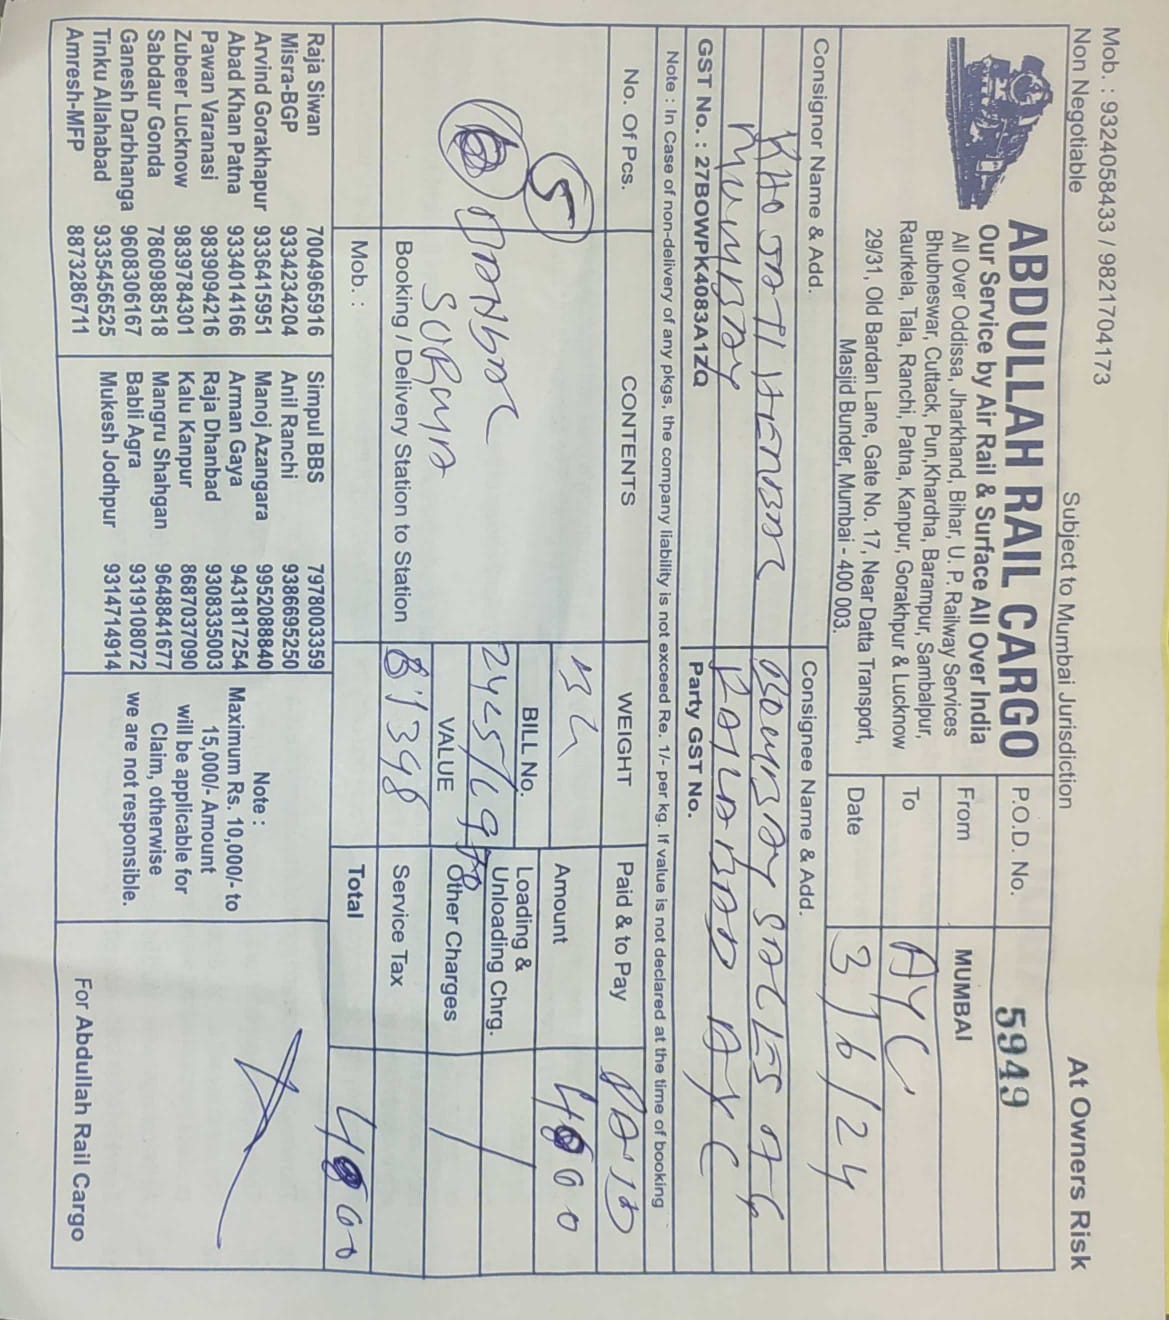 Mob. : 9324058433 / 9821704173
Non Negotiable
Subject to Mumbai Jurisdiction
At Owners Risk
ABDULLAH RAIL CARGO
Our Service by Air Rail & Surface All Over India
All Over Oddissa, Jharkhand, Bihar, U. P. Railway Services
Bhubneswar, Cuttack, Pun,Khardha, Barampur, Sambalpur,
Raurkela, Tala, Ranchi, Patna, Kanpur, Gorakhpur & Lucknow
29/31, Old Bardan Lane, Gate No. 17, Near Datta Transport,
Masjid Bunder, Mumbai - 400 003.
P.O.D. No. 5949
From MUMBAI
To AYC
Date 3/6/24
Consignor Name & Add.
MUMBAY
Consignee Name & Add.
BOMBAY SALES AG
GST No. : 27BOWPK4083A1ZQ
Party GST No.
Note : In Case of non-delivery of any pkgs, the company liability is not exceed Re. 1/- per kg. If value is not declared at the time of booking
No. Of Pcs. CONTENTS WEIGHT Paid & to Pay PAID
5
Amount
BILL No.
Loading &
Unloading Chrg.
VALUE
Other Charges
Booking / Delivery Station to Station
81398
Service Tax
Mob. :
Total
Raja Siwan 7004965916
Misra-BGP 9334234204
Arvind Gorakhapur 9336415951
Abad Khan Patna 9334014166
Pawan Varanasi 9839094216
Zubeer Lucknow 9839784301
Sabdaur Gonda 7860988518
Ganesh Darbhanga 9608306167
Tinku Allahabad 9335456525
Amresh-MFP 8873286711
Simpul BBS 7978003359
Anil Ranchi 9386695250
Manoj Azangara 9952088840
Arman Gaya 9431817254
Raja Dhanbad 9308335003
Kalu Kanpur 8687037090
Mangru Shahgan 9648841677
Babli Agra 9319108072
Mukesh Jodhpur 9314714914
Note :
Maximum Rs. 10,000/- to
15,000/- Amount
will be applicable for
Claim, otherwise
we are not responsible.
For Abdullah Rail Cargo